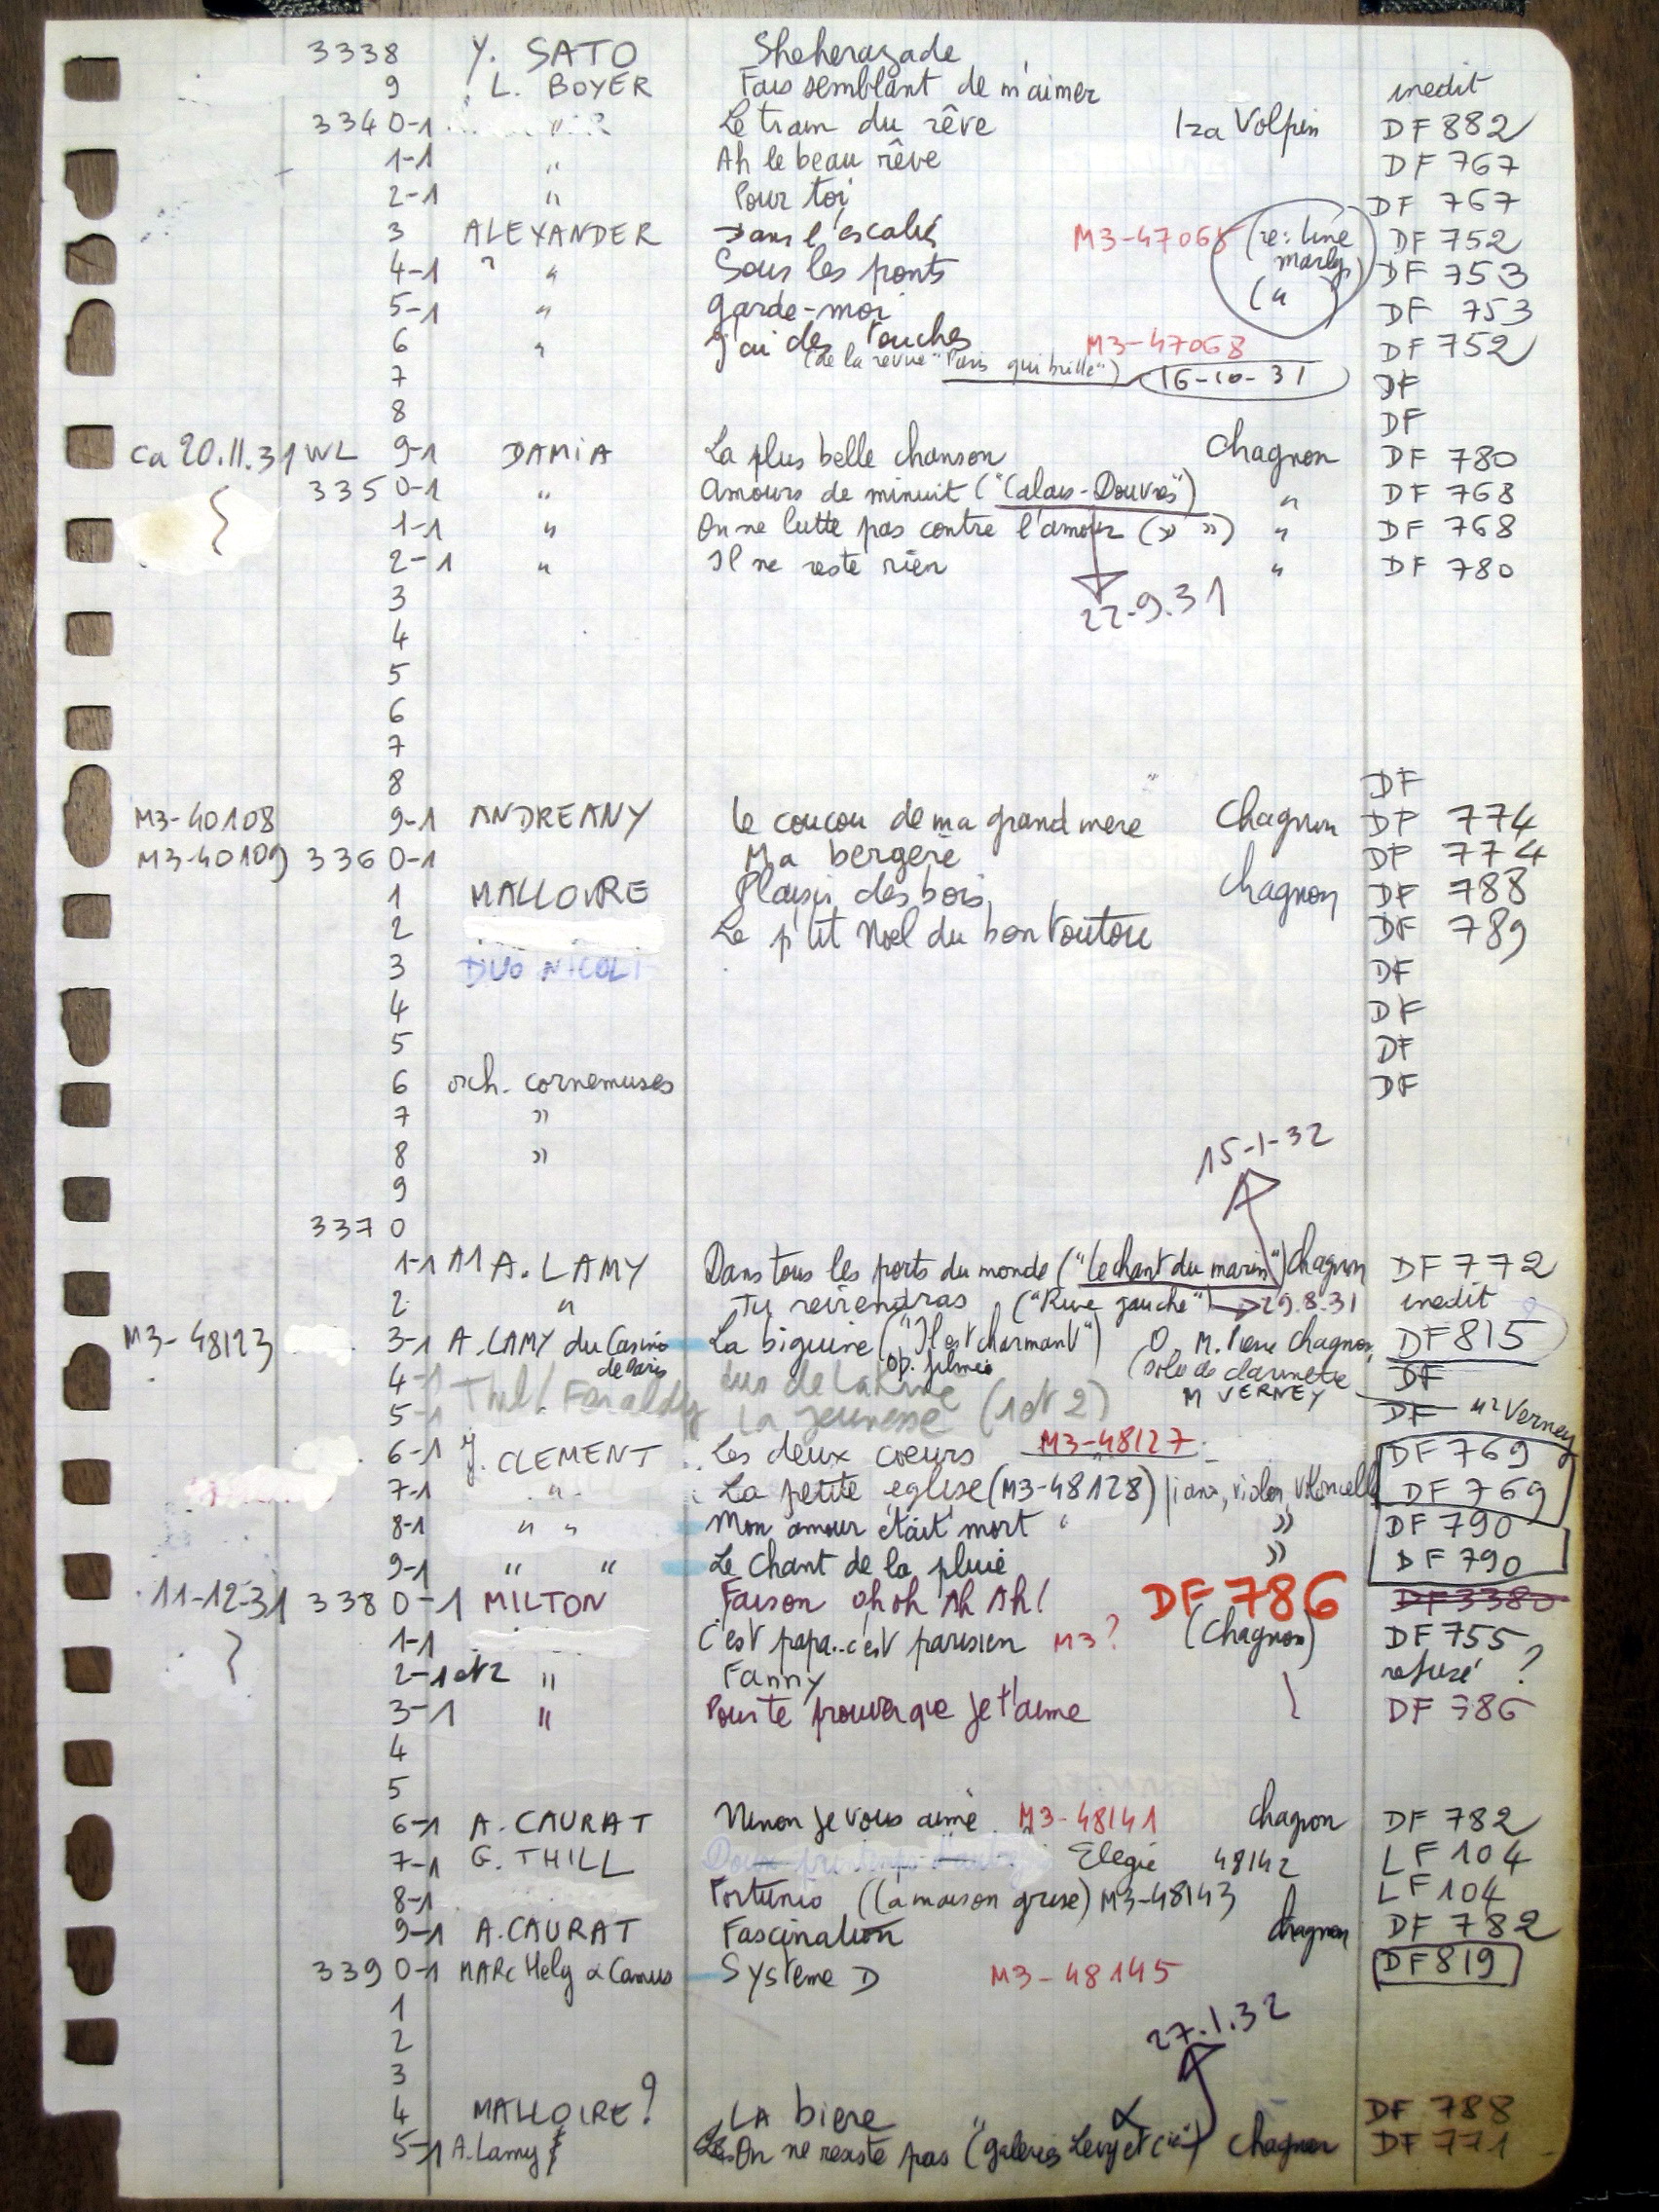 3338 Y. SATO Sheherazade
9 L. BOYER Fais semblant de m'aimer inedit
3340-1 " Le train du rêve Iza Volpin DF 882
1-1 " Ah le beau rêve DF 767
2-1 " Pour toi DF 767
3 ALEXANDER Dans l'escalier M3-47065 (re: Line Marly) DF 752
4-1 " " Sous les ponts (") DF 753
5-1 " Garde-moi DF 753
6 " J'ai des touches M3-47068 DF 752
7 (de la revue "Paris qui brille") 16-10-31 DF
8 DF
ca 20.11.31 WL 9-1 DAMIA La plus belle chanson Chagnon DF 780
3350-1 " Amours de minuit ("Calais-Douvres") " DF 768
1-1 " On ne lutte pas contre l'amour (» ») " DF 768
2-1 " Il ne reste rien " DF 780
3 22-9.31
4
5
6
7
8 " DF
M3-40108 9-1 ANDREANY Le coucou de ma grand mere Chagnon DP 774
M3-40109 3360-1 Ma bergere DP 774
1 MALLOIRE Plaisir des bois Chagnon DF 788
2 Le p'tit Noel du bon toutou DF 789
3 DUO NICOLI DF
4 DF
5 DF
6 orch. cornemuses DF
7 »
8 » 15-1-32
9
3370
1-1 A. LAMY Dans tous les ports du monde ("Le chant du marin") Chagnon DF 772
2 " Tu reviendras ("Rive gauche") 29.8.31 inedit
M3-48123 3-1 A. LAMY du Casino de Paris La biguine ("Il est charmant") op. filmée O. M. Pierre Chagnon DF 815
4-1 (solo de clarinette M VERNEY DF
5-1 Thill. Feraldy La jeunesse (1et 2) DF Verney
6-1 J. CLEMENT Les deux cœurs M3-48127 DF 769
7-1 " La petite eglise (M3-48128) piano, violon, violoncelle DF 769
8-1 " " Mon amour était mort » DF 790
9-1 " " Le chant de la pluie » DF 790
11-12-31 3380-1 MILTON Faison oh oh Ah Ah! DF 786 DF 3380
1-1 C'est papa..c'est parisien M3? (Chagnon) DF 755
2-1et2 " Fanny refusé ?
3-1 " Pour te prouver que je t'aime DF 786
4
5
6-1 A. CAURAT Ninon je vous aime M3-48141 Chagnon DF 782
7-1 G. THILL Elegie 48142 LF 104
8-1 Fortunio (La maison grise) M3-48143 LF 104
9-1 A. CAURAT Fascination Chagnon DF 782
3390-1 MARc Hely & Camus Systeme D M3-48145 DF 819
1
2 27.1.32
3
4 MALLOIRE? LA biere DF 788
5-1 A. Lamy On ne resiste pas ("Galeries Levy et Cie") Chagnon DF 771